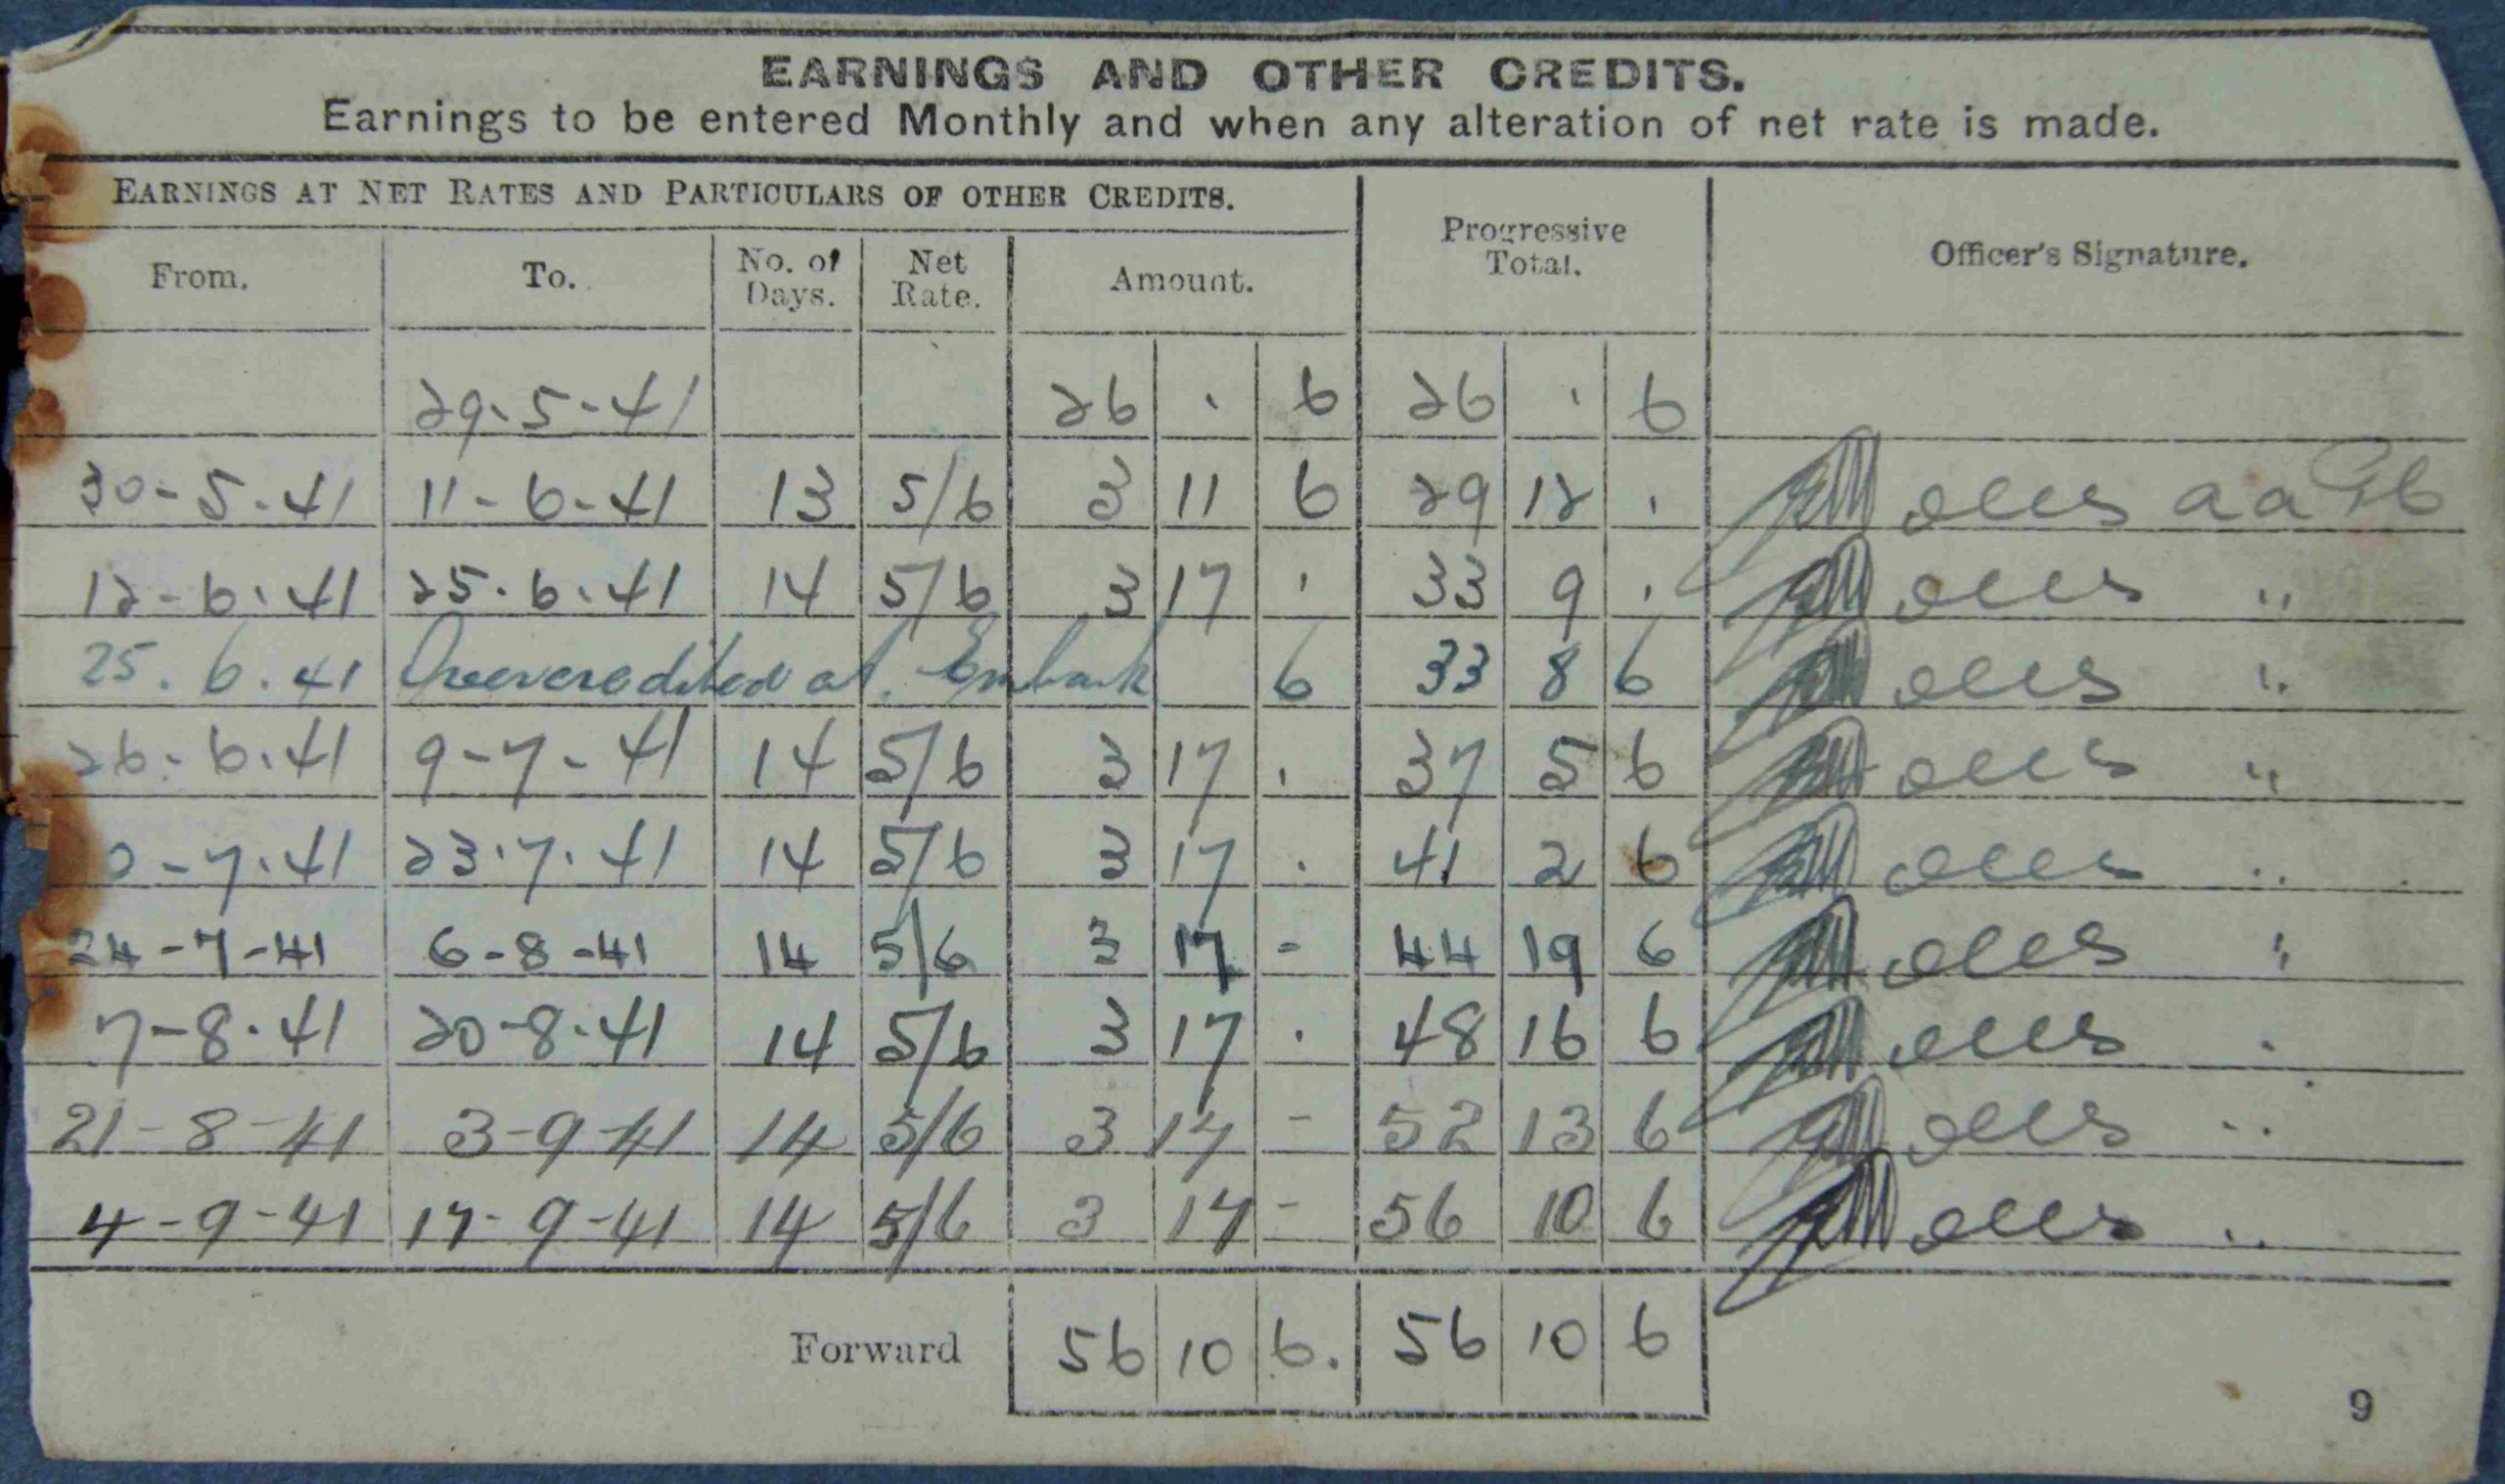 EARNINGS AND OTHER CREDITS.
Earnings to be entered Monthly and when any alteration of net rate is made.
EARNINGS AT NET RATES AND PARTICULARS OF OTHER CREDITS.
Progressive Total.
Officer's Signature.
From. To. No. of Days. Net Rate. Amount.
29-5-41 26 . 6 26 . 6
30-5-41 11-6-41 13 5/6 3 11 6 29 12 .
12-6-41 25.6.41 14 5/6 3 17 . 33 9 . "
25.6.41 Overcredited at Embark 6 33 8 6 "
26-6-41 9-7-41 14 5/6 3 17 . 37 5 6 "
0-7-41 23.7.41 14 5/6 3 17 . 41 2 6 "
24-7-41 6-8-41 14 5/6 3 17 - 44 19 6 "
7-8-41 20-8-41 14 5/6 3 17 . 48 16 6
21-8-41 3-9-41 14 5/6 3 17 - 52 13 6 "
4-9-41 17-9-41 14 5/6 3 17 - 56 10 6 "
Forward 56 10 6. 56 10 6
9